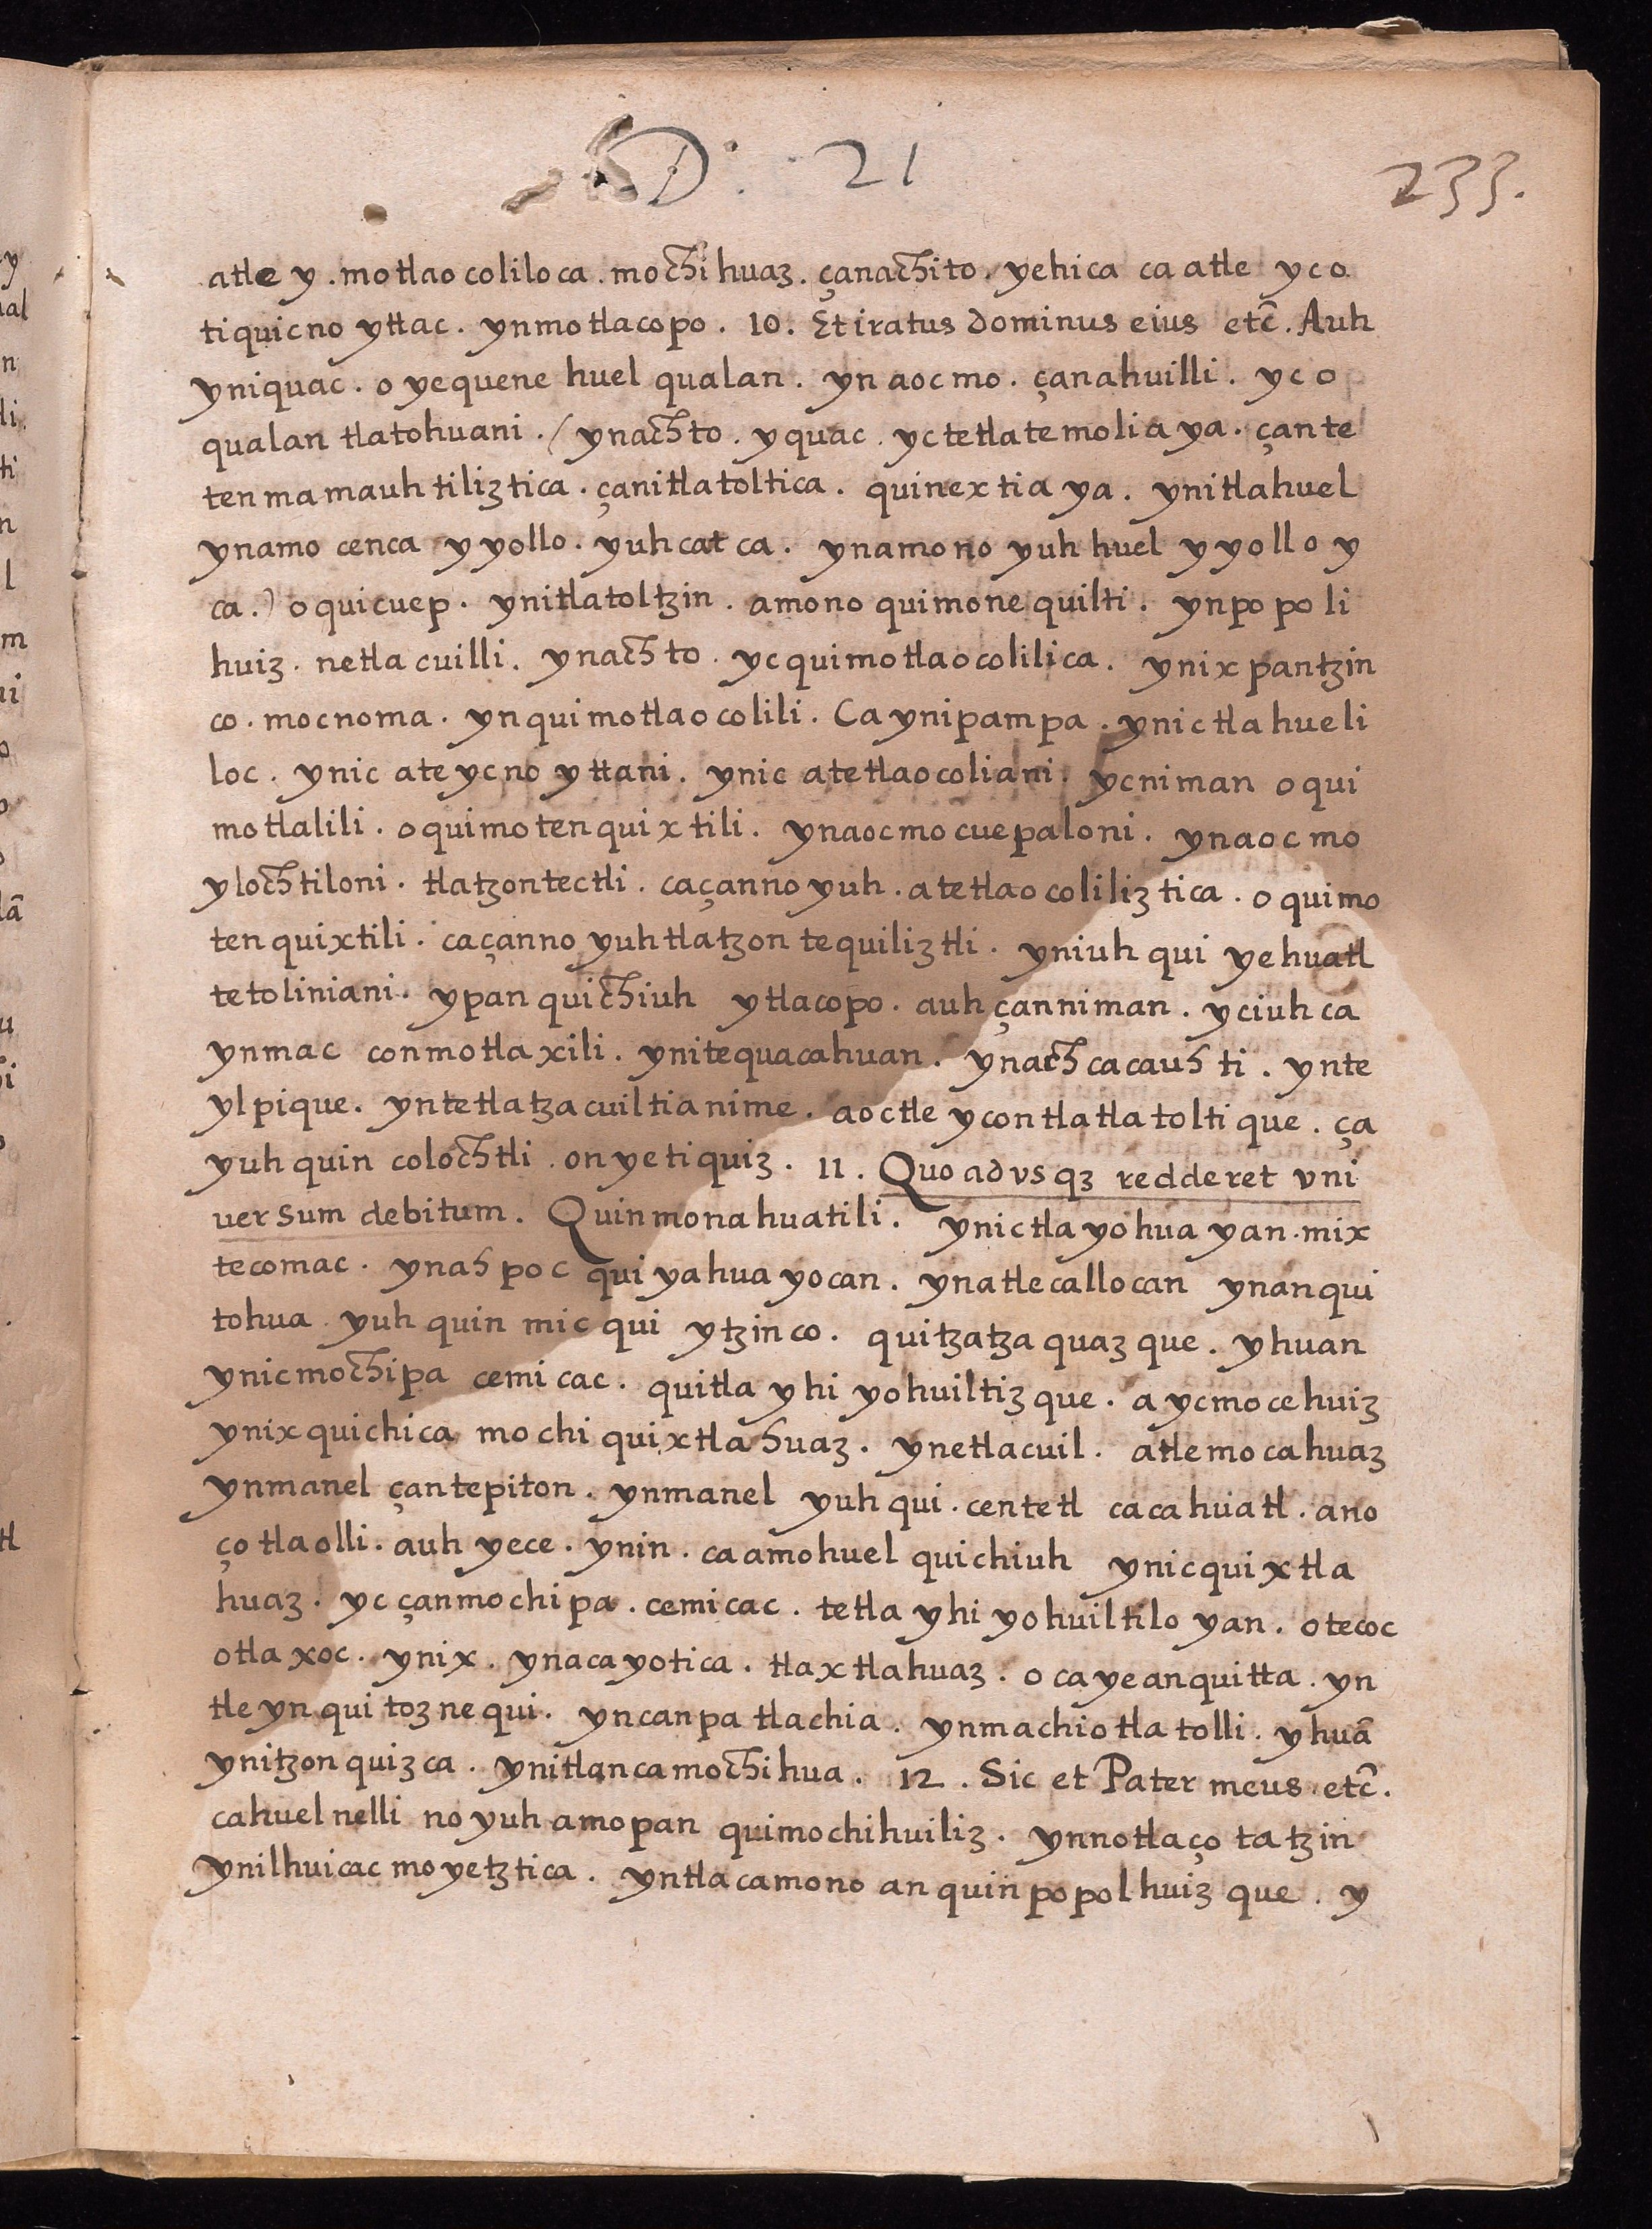 D: 21
233.
atle y. motlaocoliloca. mochihuaz. çanachito. yehica ca atle yc o
tiquicno yttac. ynmotlacopo. 10. Et iratus dominus eius etc̄. Auh
yniquac. o yequene huel qualan. yn aocmo. çanahuilli. yc o
qualan tlatohuani. (ynachto. yquac. yctetlatemoliaya. çan te
tenmamauhtiliztica. çanitlatoltica. quinextiaya. ynitlahuel
ynamo cenca yyollo. yuhcatca. ynamono yuh huel yyollo y
ca.) oquicuep. ynitlatoltzin. amono quimonequilti. ynpopoli
huiz. netlacuilli. ynachto. ycquimotlaocolilica. ynixpantzin
co. mocnoma. ynquimotlaocolili. Ca ynipampa. ynictlahueli
loc. ynic ateycnoyttani. ynic atetlaocoliani. ycniman oqui
motlalili. oquimotenquixtili. ynaocmocuepaloni. ynaocmo
ylochtiloni. tlatzontectli. caçanno yuh. atetlaocoliliztica. oquimo
tenquixtili. caçanno yuh tlatzontequiliztli. yniuhqui yehuatl
tetoliniani. ypan quichiuh ytlacopo. auh çanniman. yciuhca
ynmac conmotlaxili. ynitequacahuan. ynachcacauhti. ynte
ylpique. yntetlatzacuiltianime. aoctle ycontlatlatoltique. ça
yuhquin colochtli. onyetiquiz. 11. Quo advsqz redderet vni
uersum debitum. Quinmonahuatili. ynictlayohuayan. mix
tecomac. ynahpoc quiyahuayocan. ynatlecallocan ynanqui
tohua. yuhquin micqui ytzinco. quitzatzaquazque. yhuan
ynicmochipa cemicac. quitlayhiyohuiltizque. aycmocehuiz
ynixquichica mochi quixtlahuaz. ynetlacuil. atlemocahuaz
ynmanel çantepiton. ynmanel yuhqui. centetl cacahuatl. ano
ço tlaolli. auh yece. ynin. caamohuel quichiuh ynicquixtla
huaz. yc çanmochipa. cemicac. tetlayhiyohuiltiloyan. otecoc
otlaxoc. ynix. ynacayotica. tlaxtlahuaz. o ca yeanquitta. yn
tle ynquitoznequi. yncanpa tlachia. ynmachiotlatolli. yhuā
ynitzonquizca. ynitlancamochihua. 12. Sic et Pater meus etc̄.
cahuelnelli no yuh amopan quimochihuiliz. ynnotlaçotatzin
ynilhuicac moyetztica. yntlacamono anquinpopolhuizque. y